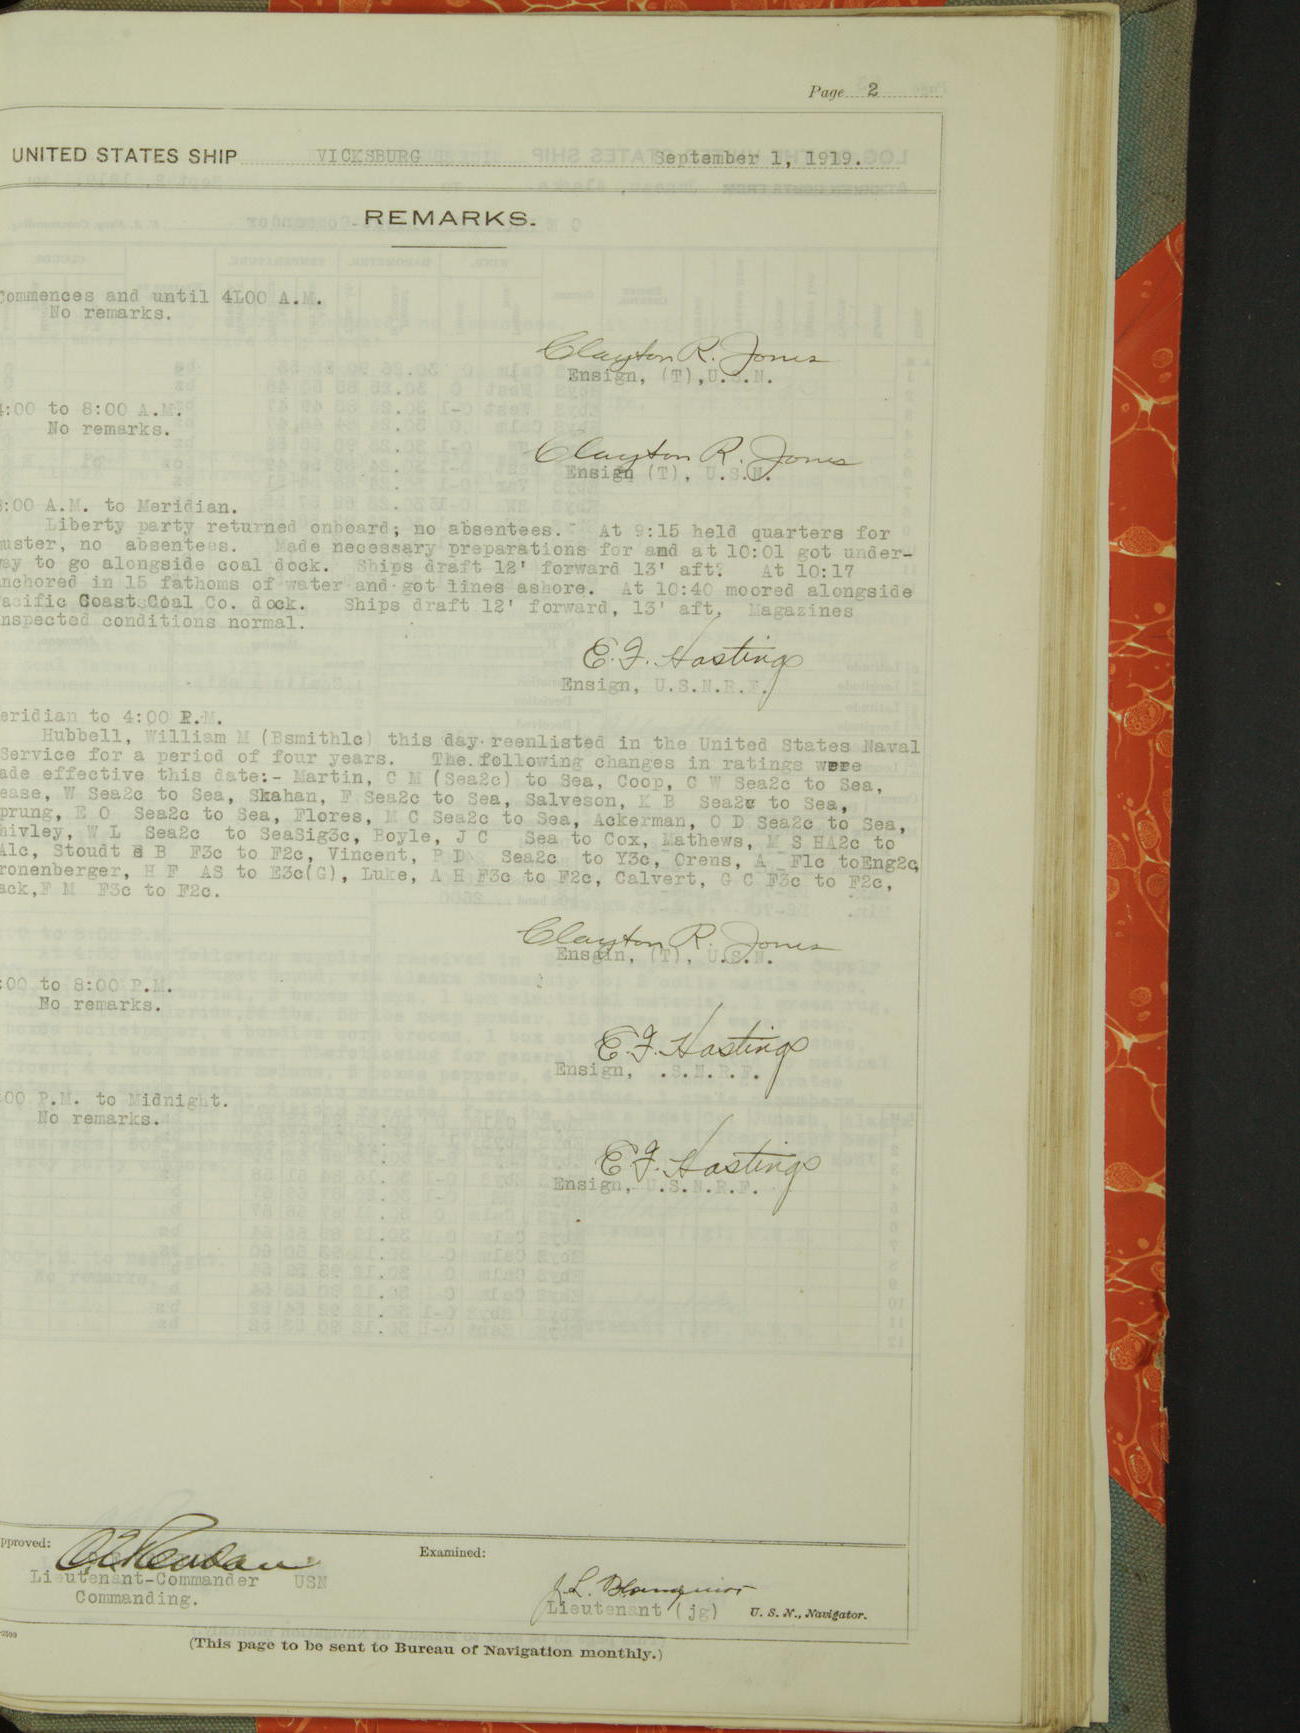 Page 2
UNITED STATES SHIP VICKSBURG September 1, 1919.
REMARKS.
Commences and until 4L00 A.M.
No remarks.
Clayton R. Jones
Ensign, (T),U.S.N.
4:00 to 8:00 A.M.
No remarks.
Clayton R. Jones
Ensign (T), U.S.N.
8:00 A.M. to Meridian.
Liberty party returned onboard; no absentees. At 9:15 held quarters for
muster, no absentees. Made necessary preparations for and at 10:01 got under-
way to go alongside coal dock. Ships draft 12' forward 13' aft. At 10:17
anchored in 15 fathoms of water and got lines ashore. At 10:40 moored alongside
Pacific Coast Coal Co. dock. Ships draft 12' forward, 13' aft, Magazines
inspected conditions normal.
E. F. Hastings
Ensign, U.S.N.R.F.
eridian to 4:00 P.M.
Hubbell, William M (Bsmith1c) this day reenlisted in the United States Naval
Service for a period of four years. The following changes in ratings were
ade effective this date:- Martin, C M (Sea2c) to Sea, Coop, C W Sea2c to Sea,
ease, W Sea2c to Sea, Skahan, F Sea2c to Sea, Salveson, K B Sea2c to Sea,
prung, E O Sea2c to Sea, Flores, M C Sea2c to Sea, Ackerman, O D Sea2c to Sea,
hivley, W L Sea2c to SeaSig3c, Boyle, J C Sea to Cox, Mathews, M S HA2c to
A1c, Stoudt B F3c to F2c, Vincent, P D Sea2c to Y3c, Orens, A F1c toEng2c,
ronenberger, H F AS to E3c(G), Luke, A H F3c to F2c, Calvert, G C F3c to F2c,
ack,F M F3c to F2c.
Clayton R. Jones
Ensgin, (T), U.S.N.
:00 to 8:00 P.M.
No remarks.
E. F. Hastings
Ensign, .S.N.R.F.
:00 P.M. to Midnight.
No remarks.
E. F. Hastings
Ensign, U.S.N.R.F.
pproved:
Examined:
Lieutenant-Commander USN
Commanding.
Lieutenant (jg) U. S. N., Navigator.
(This page to be sent to Bureau of Navigation monthly.)